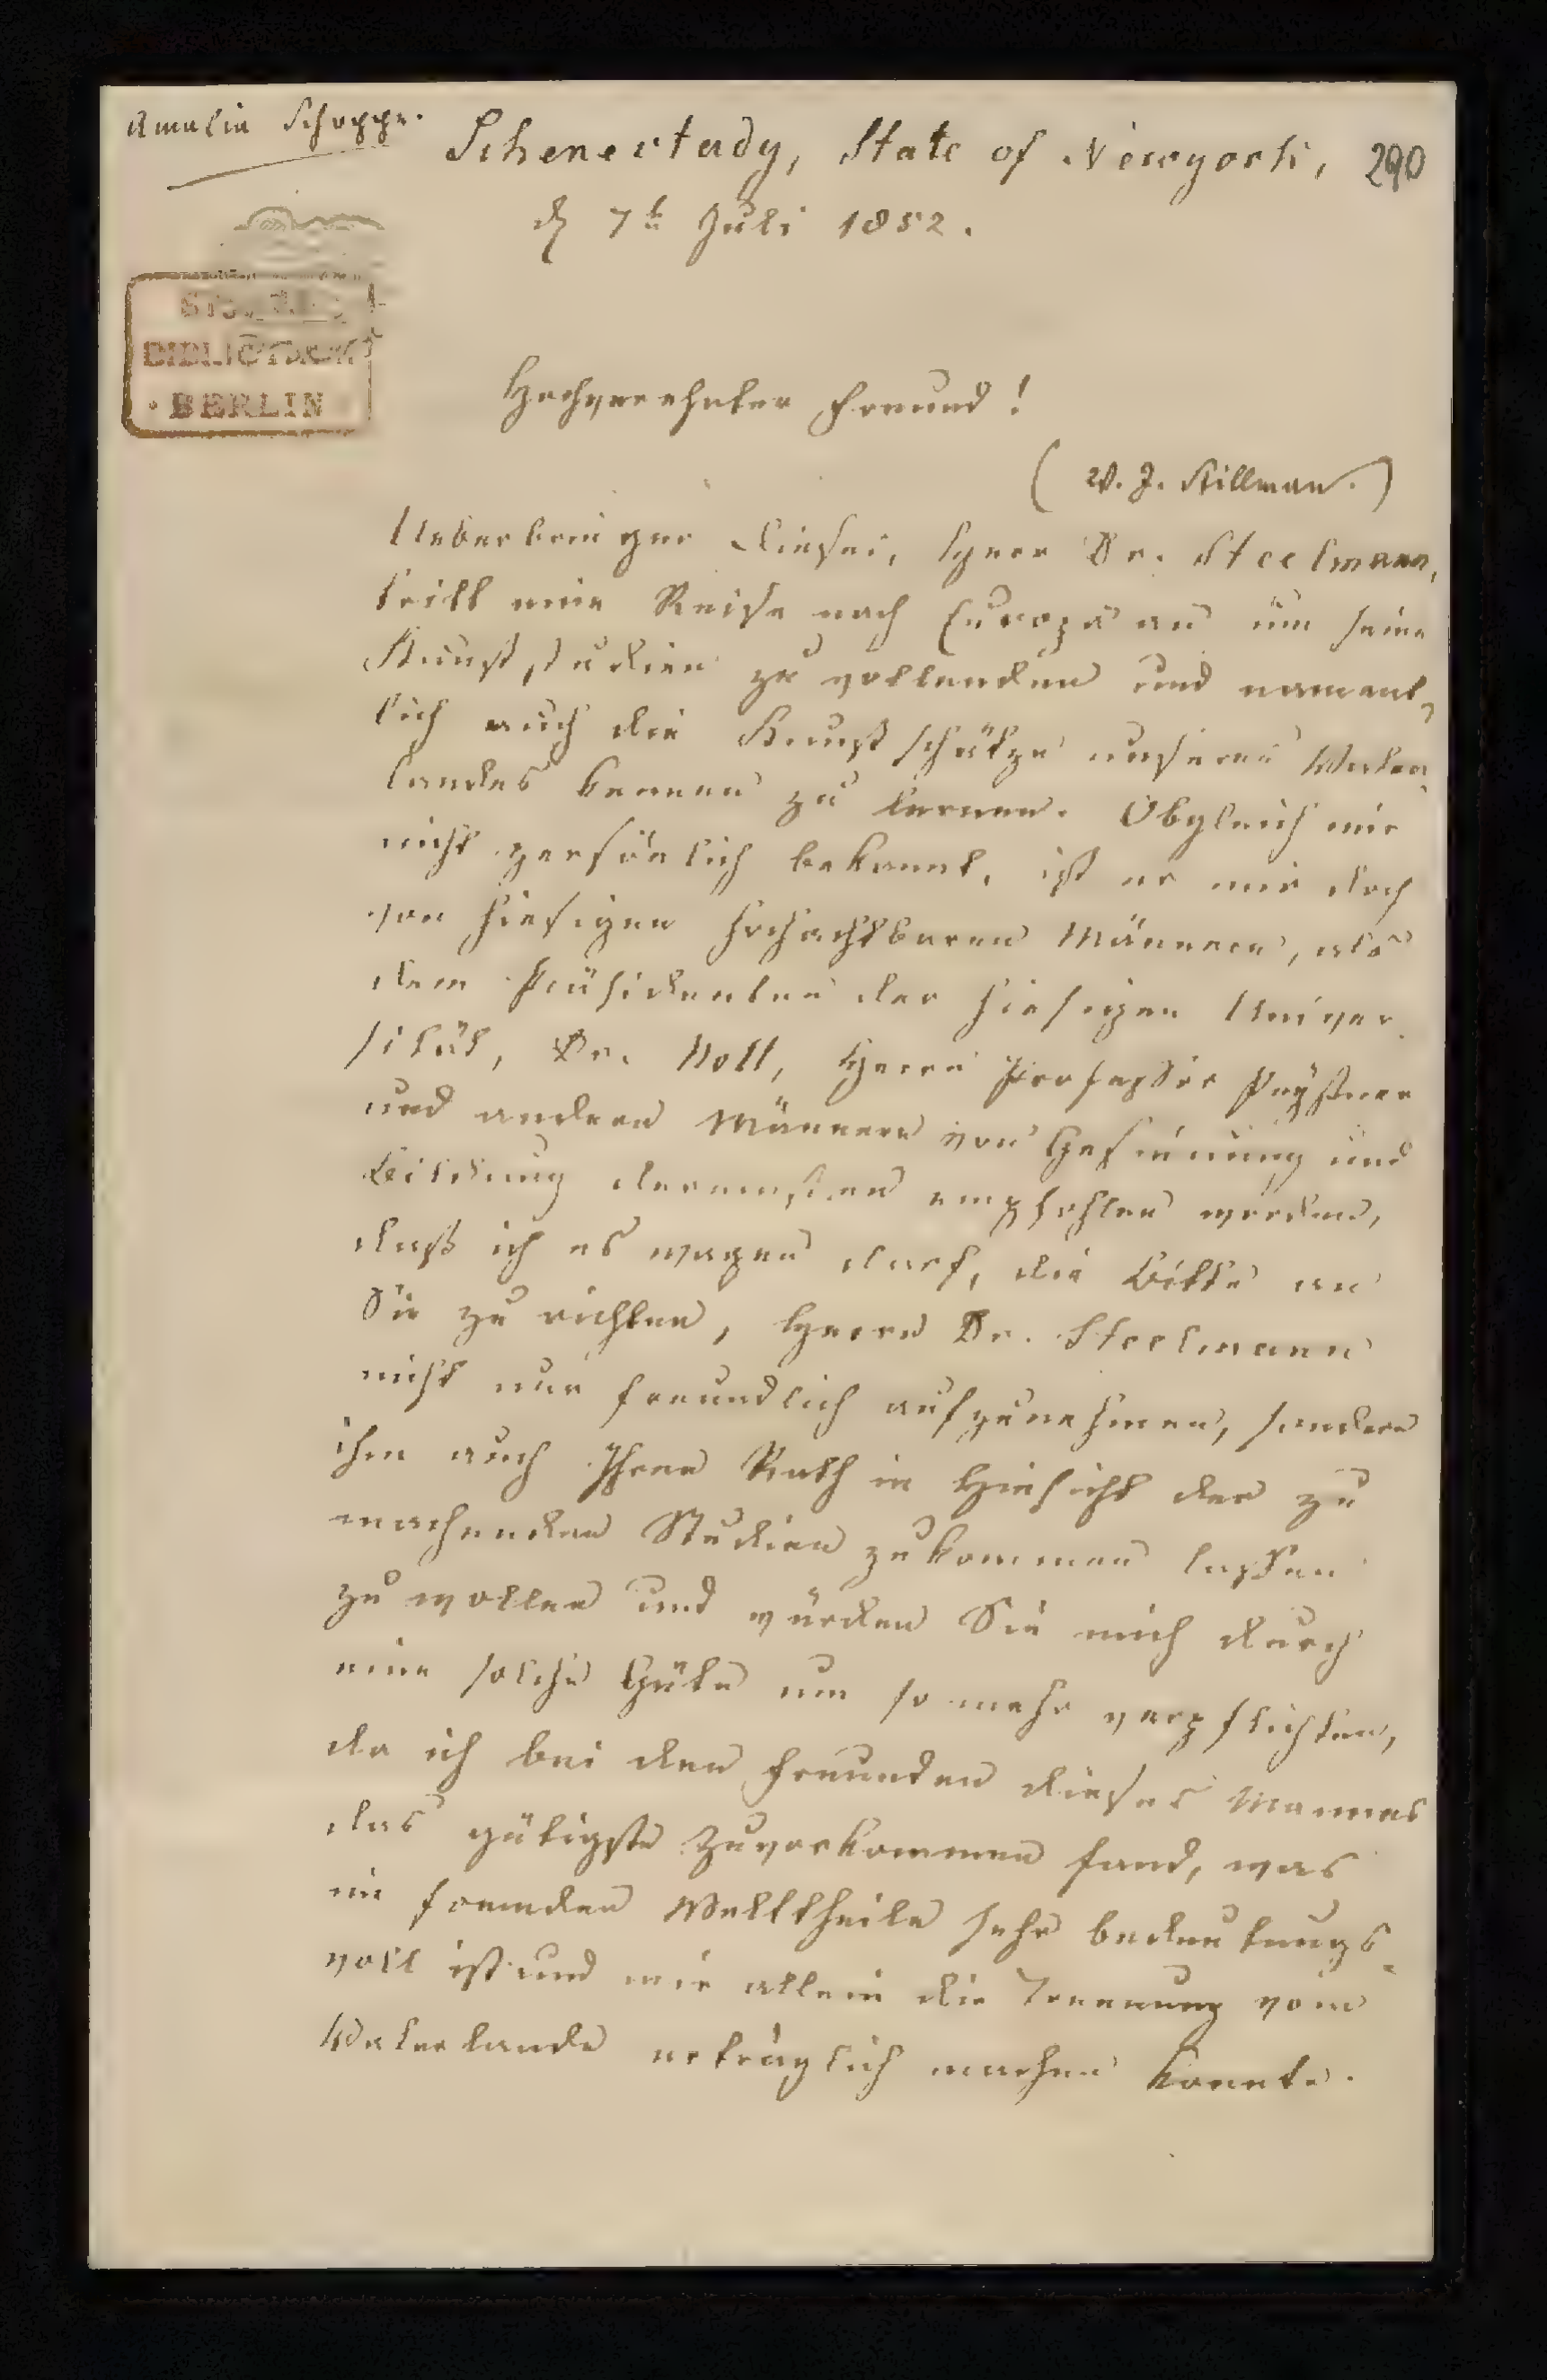 Amalia Schoppe.
Schenectady, State of Newyork, 290
d 7t Juli 1852.
BIBLIOTHEK
BERLIN
Hochverehrter Freund!
(W. J. Stillman.)
Ueberbringer dieses, Herr Dr. Steelmann,
tritt eine Reise nach Europa an um seine
Kunststudien zu vollenden und nament-
lich auch die Kunstschätze unseres Vater-
landes kennen zu lernen. Obgleich mir
nicht persönlich bekannt, ist er mir doch
von hiesigen hochachtbaren Männern, als
dem Präsidenten der hiesigen Univer-
sität, Dr. Nott, Herrn Professor
und andern Männern von Gesinnung und
Bildung dermaßen empfohlen worden,
daß ich es wagen darf, die Bitte an
Sie zu richten, Herrn Dr. Steelmann
nicht nur freundlich aufzunehmen, sondern
ihm auch Ihren Rath in Hinsicht der zu
machenden Studien zukommen lassen
zu wollen und würden Sie mich durch
eine solche Güte um so mehr verpflichten,
da ich bei den Freunden dieses Mannes
das gütigste Zuvorkommen fand, was
im fremden Welttheile sehr bedeutungs-
voll ist und mir allein die Trennung vom
Vaterlande erträglich machen konnte.